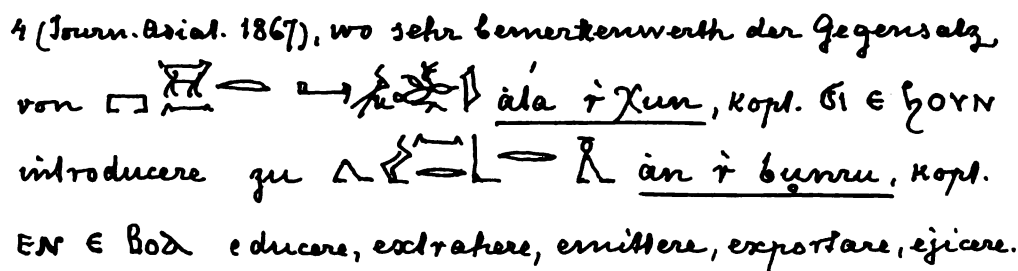 4 (Journ. Asiat. 1867), wo sehr bemerkenwerth der Gegensatz
von åta ṙ χun, kopt. ϭⲓ ⲉ ϩⲟⲩⲛ
introducere zu ån ṙ bu̥nru, kopt.
ⲉⲛ ⲉ ⲃⲟⲗ educere, extrahere, emittere, exportare, ejicere.